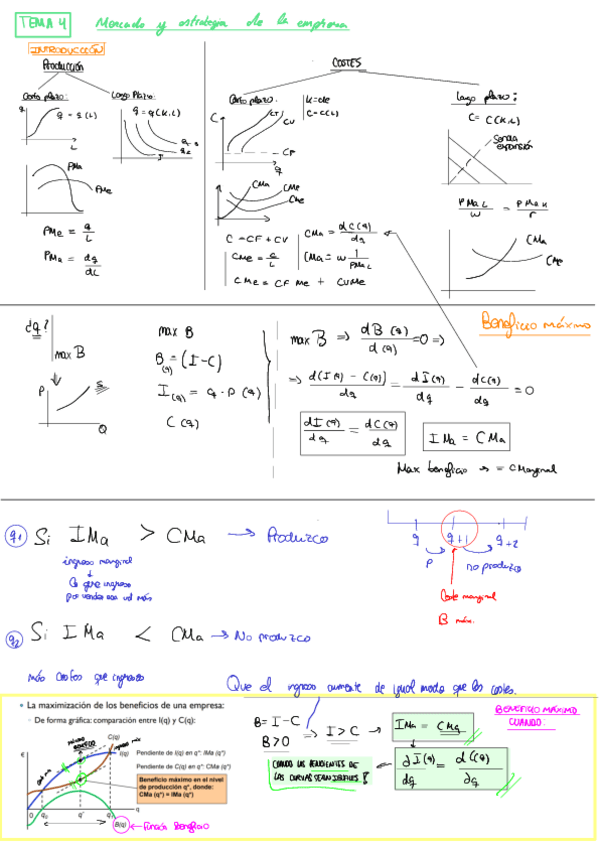 TEMA 4 Mercado y estrategia de la empresa
INTRODUCCIÓN
Producción
Corto plazo:
q
q = q(L)
L
Largo Plazo:
q = q(K,L)
PMa
PMe
PMe = q / L
PMa = dq / dL
COSTES
Corto plazo:
K = cte
C = C(L)
C
CT
CV
CF
q
CMa
CMe
C = CF + CV
CMa = dC(q) / dq
CMa = w 1 / PMaL
CMe = CFMe + CVMe
Largo plazo:
C = C(K,L)
Senda expansión
PMaL / w = PMaK / r
CMa
CMe
¿q?
max B
P
S
Q
max B
B(q) = (I - C)
I(q) = q · P(q)
C(q)
Beneficio máximo
max B => dB(q) / d(q) = 0 =>
=> d(I(q) - C(q)) / dq = dI(q) / dq - dC(q) / dq = 0
dI(q) / dq = dC(q) / dq
IMa = CMa
Max beneficio → = CMarginal
q1 Si IMa > CMa → Produzco
ingreso marginal
↓
lo que ingreso
por vender una ud más
q q+1 q+2
P no produzco
Coste marginal
B máx.
q2 Si IMa < CMa → No produzco
más costos que ingresos
Que el ingreso aumente de igual modo que los costes.
• La maximización de los beneficios de una empresa:
– De forma gráfica: comparación entre I(q) y C(q):
€
C(q)
I(q)
Pendiente de I(q) en q*: IMa (q*)
Pendiente de C(q) en q*: CMa (q*)
Beneficio máximo en el nivel
de producción q*, donde:
CMa (q*) = IMa (q*)
0 q* q
B(q) ← Función beneficio
B = I - C
B > 0 => I > C →
IMa = CMa
dI(q) / dq = dC(q) / dq
CUANDO LAS PENDIENTES DE
LAS CURVAS SEAN IGUALES
BENEFICIO MÁXIMO
CUANDO: